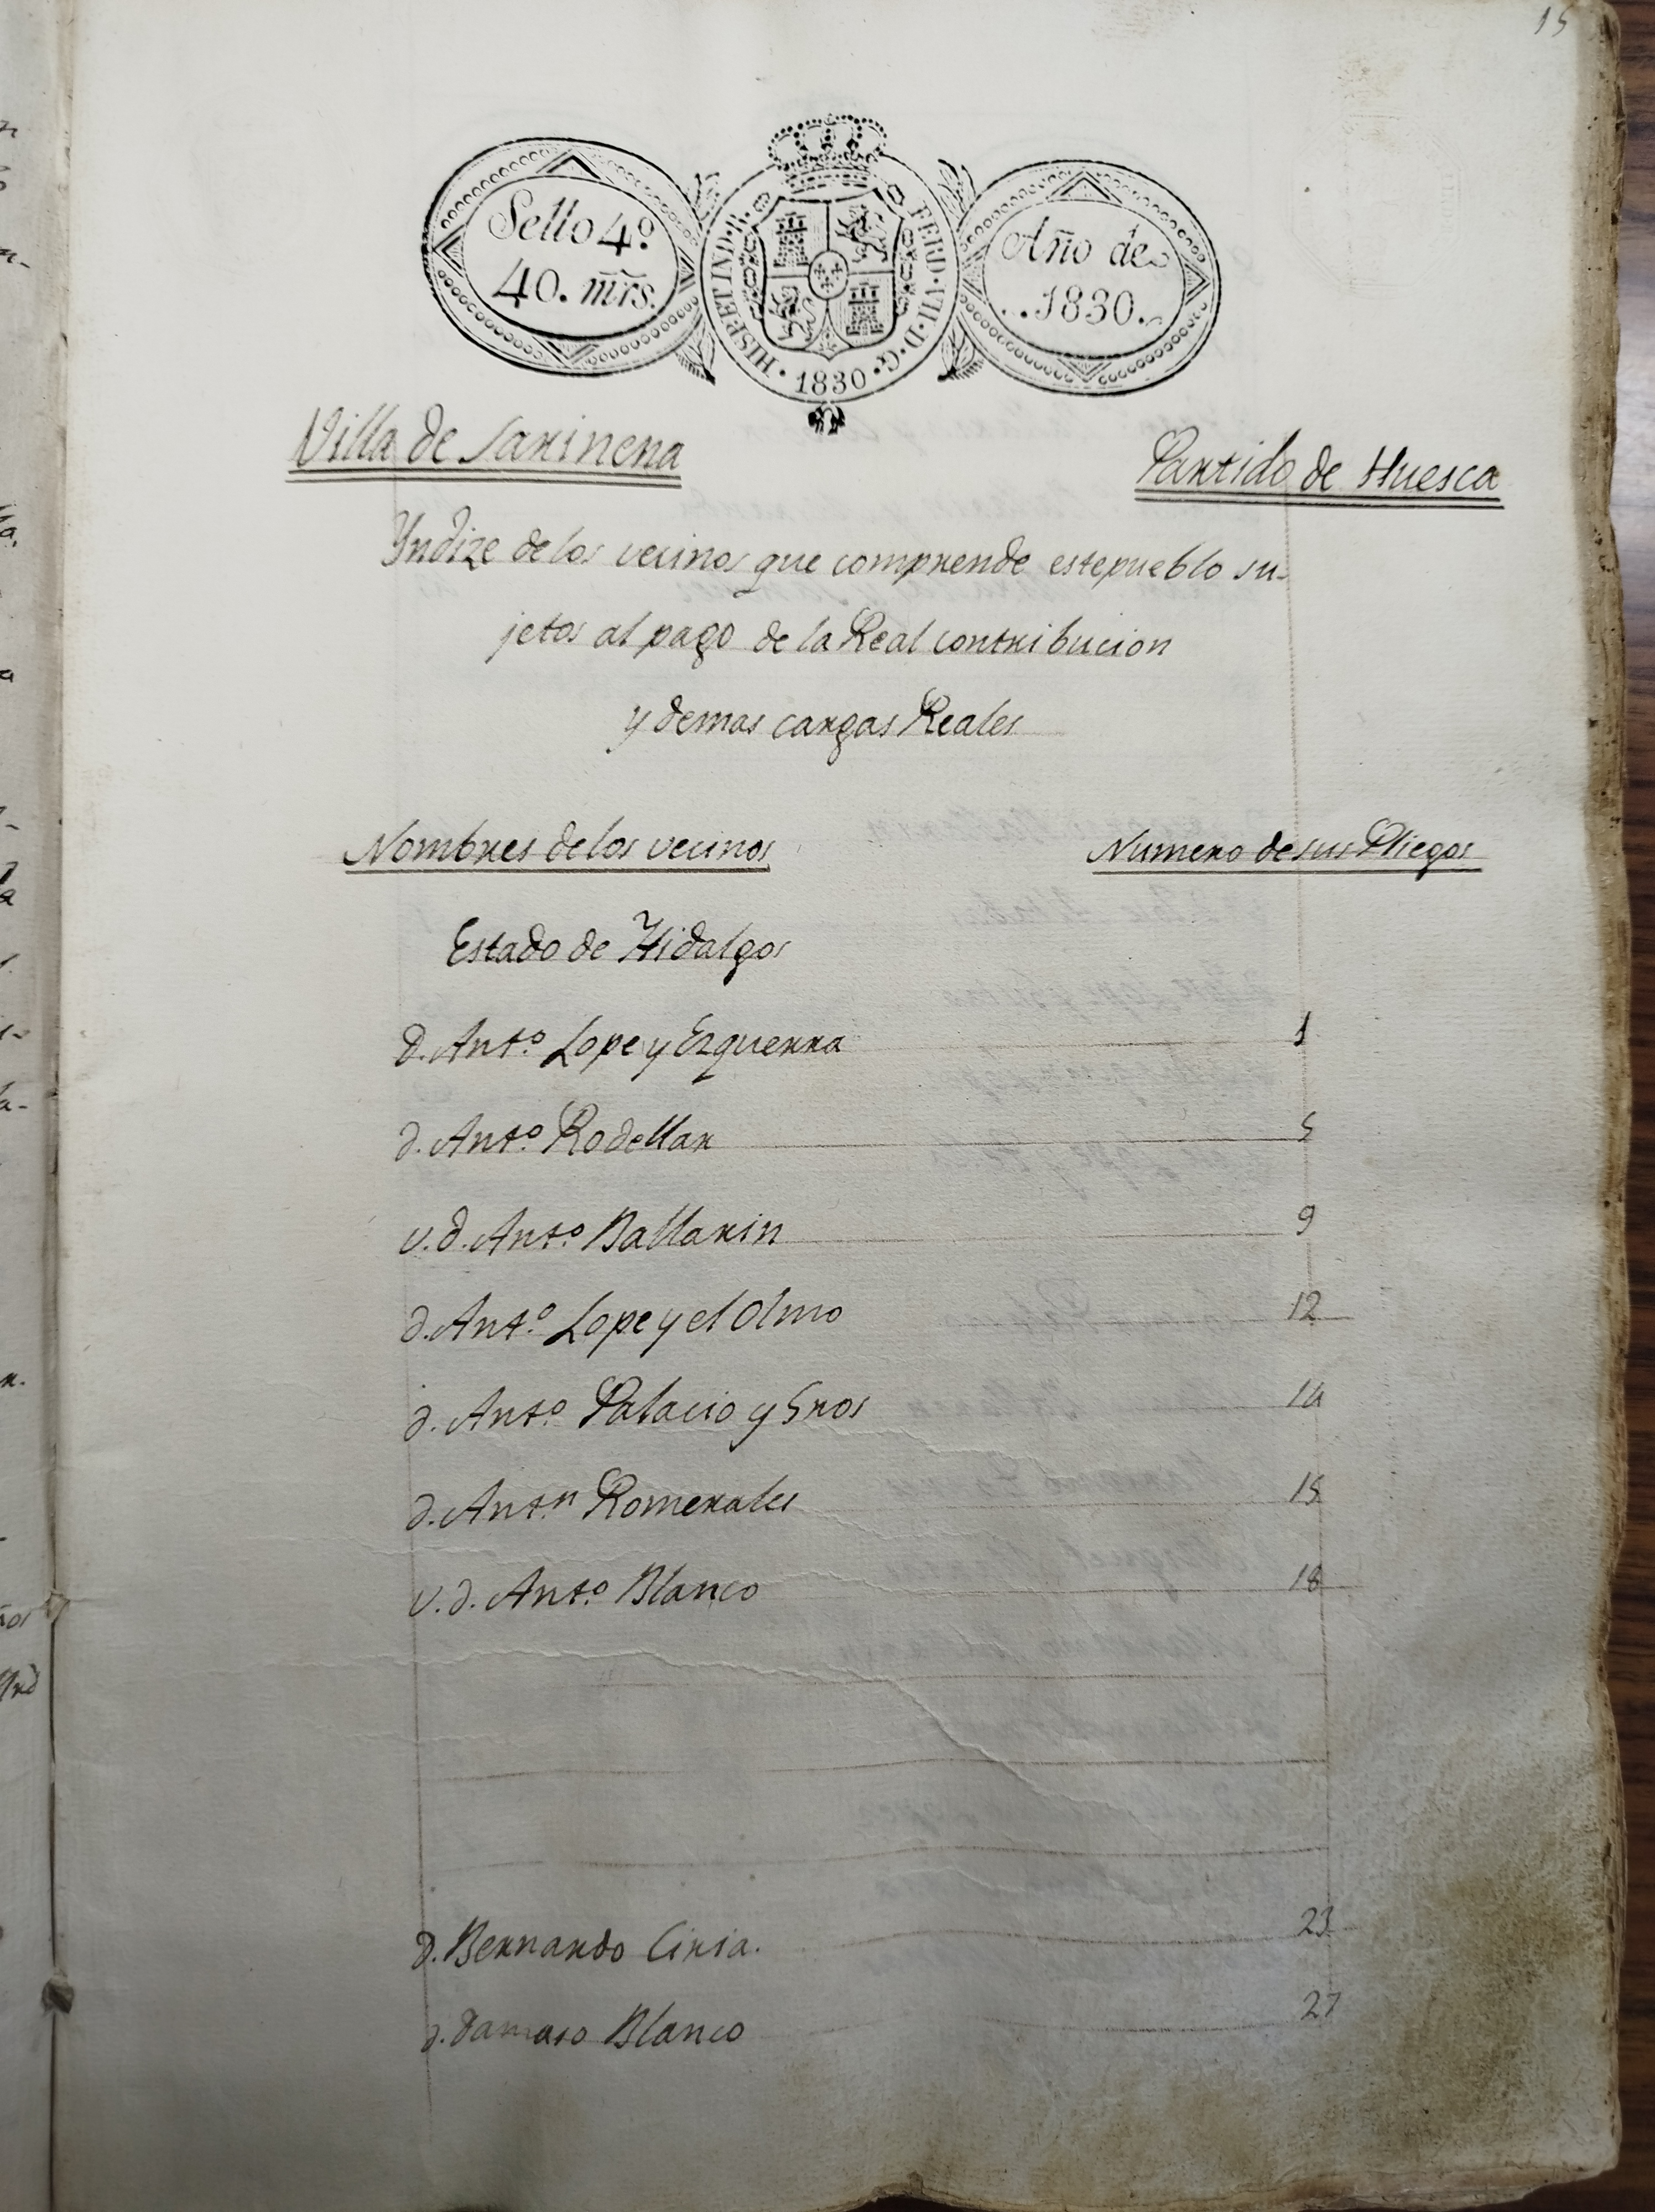 15
Sello 4º
40. mrs.
HISP. ET IND. R. FERD. VII. D. G. 1830
Año de
1830.
Villa de Sariñena
Partido de Huesca
Yndize de los vecinos que comprende este pueblo su-
jetos al pago de la Real contribucion
y demas cargas Reales
Nombres de los vecinos
Numero de sus Pliegos
Estado de Hidalgos
d. Antº Lope y Ezquerra 1
d. Antº Rodellar 5
v. d. Antº Ballarin 9
d. Antº Lope y el Olmo 12
d. Antº Palacio y 14
d. Antn Romerales 15
v. d. Antº Blanco 18
d. Bernardo Ciria. 23
d. Damaso Blanco 27